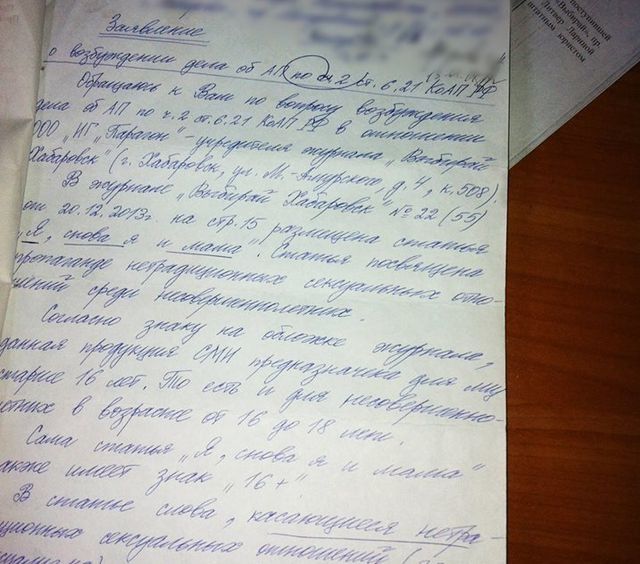 Заявление
о возбуждении дела об АП по ч.2 ст. 6.21 КоАП РФ
Обращаюсь к Вам по вопросу возбуждения
дела об АП по ч.2 ст.6.21 КоАП РФ в отношении
ООО „ИГ „Парагон" – учредителя журнала „Выбирай
Хабаровск" (г. Хабаровск, ул. М.-Амурского, д. 4, к. 508).
В журнале „Выбирай Хабаровск" № 22 (55)
от 20.12.2013г. на стр. 15 размещена статья
„Я, снова я и мама". Статья посвящена
пропаганде нетрадиционных сексуальных отно-
шений среди несовершеннолетних.
Согласно знаку на обложке журнала,
данная продукция СМИ предназначена для лиц
старше 16 лет. То есть и для несовершенно-
летних в возрасте от 16 до 18 лет.
Сама статья „Я, снова я и мама"
также имеет знак „16+"
В статье слова, касающиеся нетра-
ционных сексуальных отношений
поступившей
Выбирай, др.
Литвер Лариной
штатным юристом